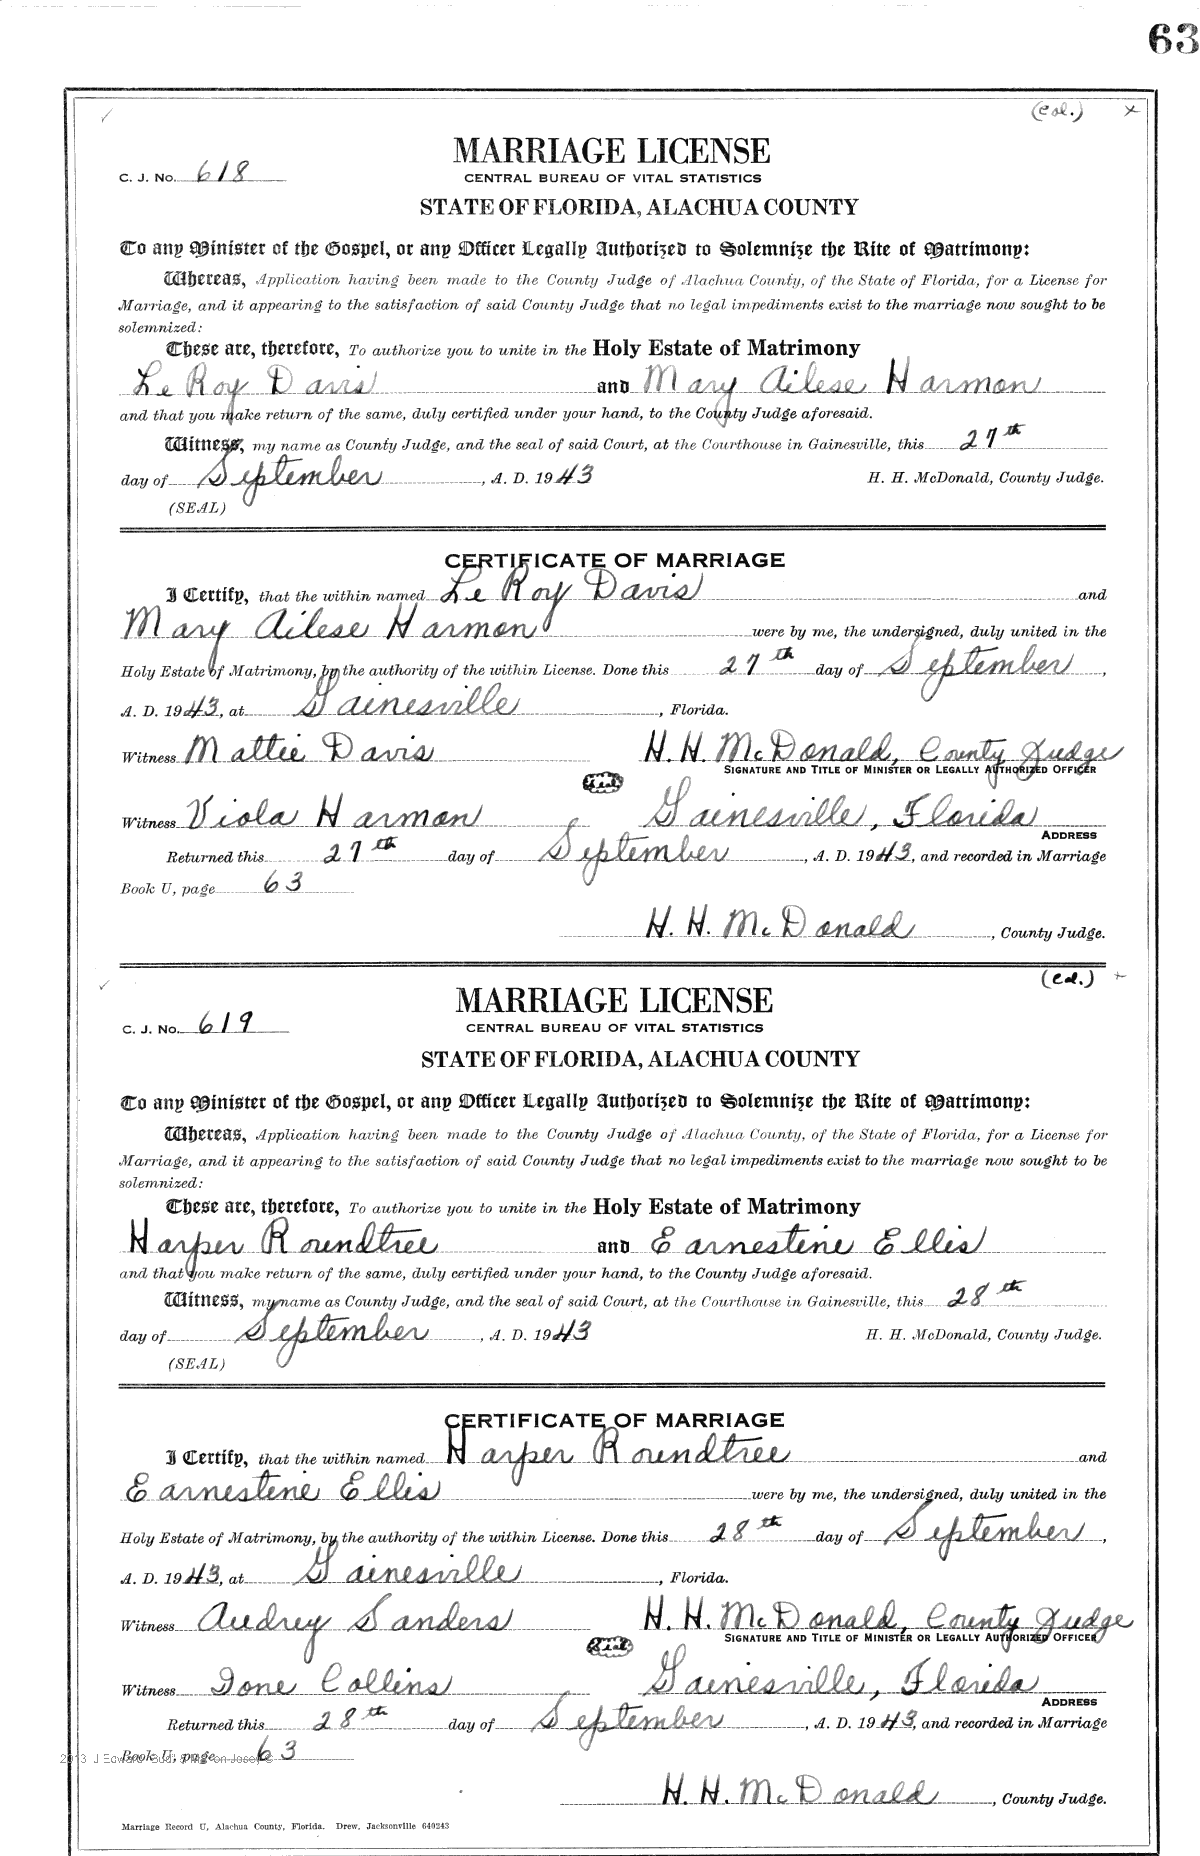 63
(Col.) x
MARRIAGE LICENSE
C. J. No. 618
CENTRAL BUREAU OF VITAL STATISTICS
STATE OF FLORIDA, ALACHUA COUNTY
To any Minister of the Gospel, or any Officer Legally Authorized to Solemnize the Rite of Matrimony:
Whereas, Application having been made to the County Judge of Alachua County, of the State of Florida, for a License for
Marriage, and it appearing to the satisfaction of said County Judge that no legal impediments exist to the marriage now sought to be
solemnized:
These are, therefore, To authorize you to unite in the Holy Estate of Matrimony
Le Roy Davis and Mary Ailese Harmon
and that you make return of the same, duly certified under your hand, to the County Judge aforesaid.
Witness, my name as County Judge, and the seal of said Court, at the Courthouse in Gainesville, this 27th
day of September, A. D. 1943 H. H. McDonald, County Judge.
(SEAL)
CERTIFICATE OF MARRIAGE
I Certify, that the within named Le Roy Davis and
Mary Ailese Harmon were by me, the undersigned, duly united in the
Holy Estate of Matrimony, by the authority of the within License. Done this 27th day of September,
A. D. 1943, at Gainesville, Florida.
Witness Mattie Davis H. H. McDonald, County Judge
SIGNATURE AND TITLE OF MINISTER OR LEGALLY AUTHORIZED OFFICER
Seal
Witness Viola Harmon Gainesville, Florida
ADDRESS
Returned this 27th day of September, A. D. 1943, and recorded in Marriage
Book U, page 63
H. H. McDonald, County Judge.
(Col.) +
MARRIAGE LICENSE
C. J. No. 619
CENTRAL BUREAU OF VITAL STATISTICS
STATE OF FLORIDA, ALACHUA COUNTY
To any Minister of the Gospel, or any Officer Legally Authorized to Solemnize the Rite of Matrimony:
Whereas, Application having been made to the County Judge of Alachua County, of the State of Florida, for a License for
Marriage, and it appearing to the satisfaction of said County Judge that no legal impediments exist to the marriage now sought to be
solemnized:
These are, therefore, To authorize you to unite in the Holy Estate of Matrimony
Harper Roundtree and Earnestine Ellis
and that you make return of the same, duly certified under your hand, to the County Judge aforesaid.
Witness, my name as County Judge, and the seal of said Court, at the Courthouse in Gainesville, this 28th
day of September, A. D. 1943 H. H. McDonald, County Judge.
(SEAL)
CERTIFICATE OF MARRIAGE
I Certify, that the within named Harper Roundtree and
Earnestine Ellis were by me, the undersigned, duly united in the
Holy Estate of Matrimony, by the authority of the within License. Done this 28th day of September,
A. D. 1943, at Gainesville, Florida.
Witness Audrey Sanders H. H. McDonald, County Judge
SIGNATURE AND TITLE OF MINISTER OR LEGALLY AUTHORIZED OFFICER
Seal
Witness Ione Collins Gainesville, Florida
ADDRESS
Returned this 28th day of September, A. D. 1943, and recorded in Marriage
Book U, page 63
2013 J Edward
H. H. McDonald, County Judge.
Marriage Record U, Alachua County, Florida. Drew, Jacksonville 640243